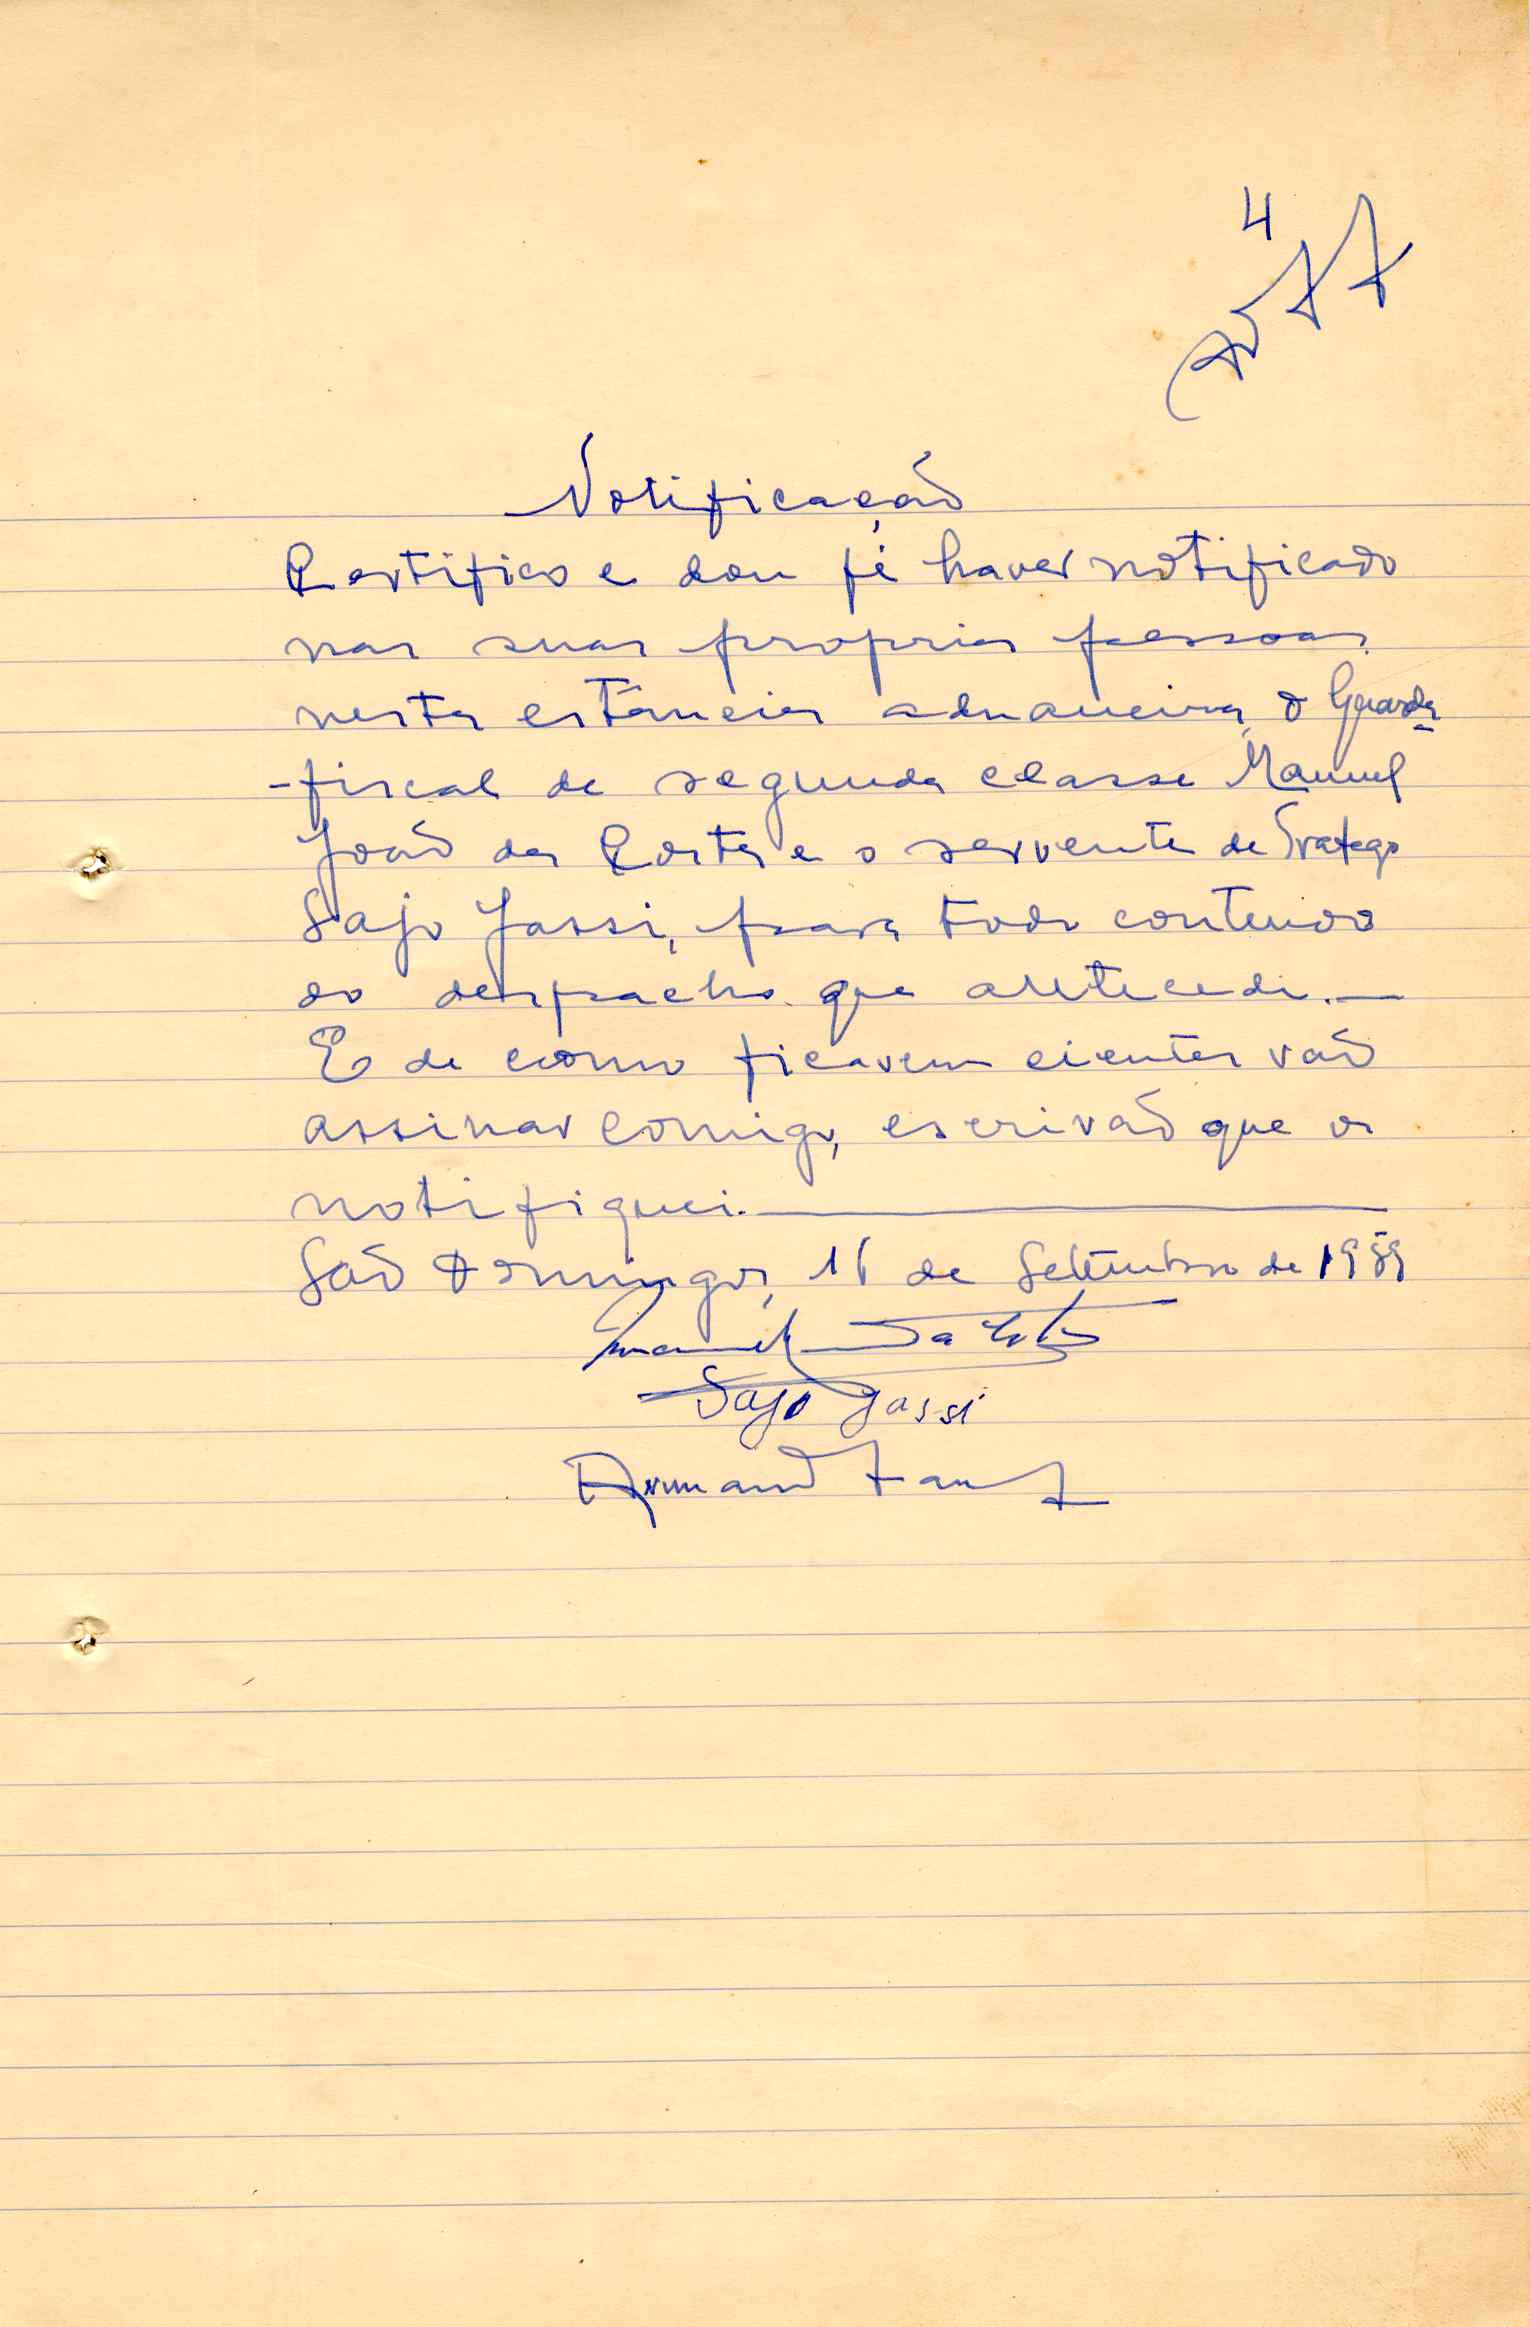 4
Notificação
Certifico e dou fé haver notificado
nas suas proprias pessoas
nesta estância aduaneira, o Guarda
-fiscal de segunda classe Manuel
João da Costa e o servente de Tráfego
Sajo Jassi, para todo contendo
do despacho que antecede.—
E de como ficavem cientes vão
assinar comigo, escrivão que os
notifiquei.—
São Domingos, 16 de Setembro de 1959
Manuel da Costa
Sajo Jassi
Armando